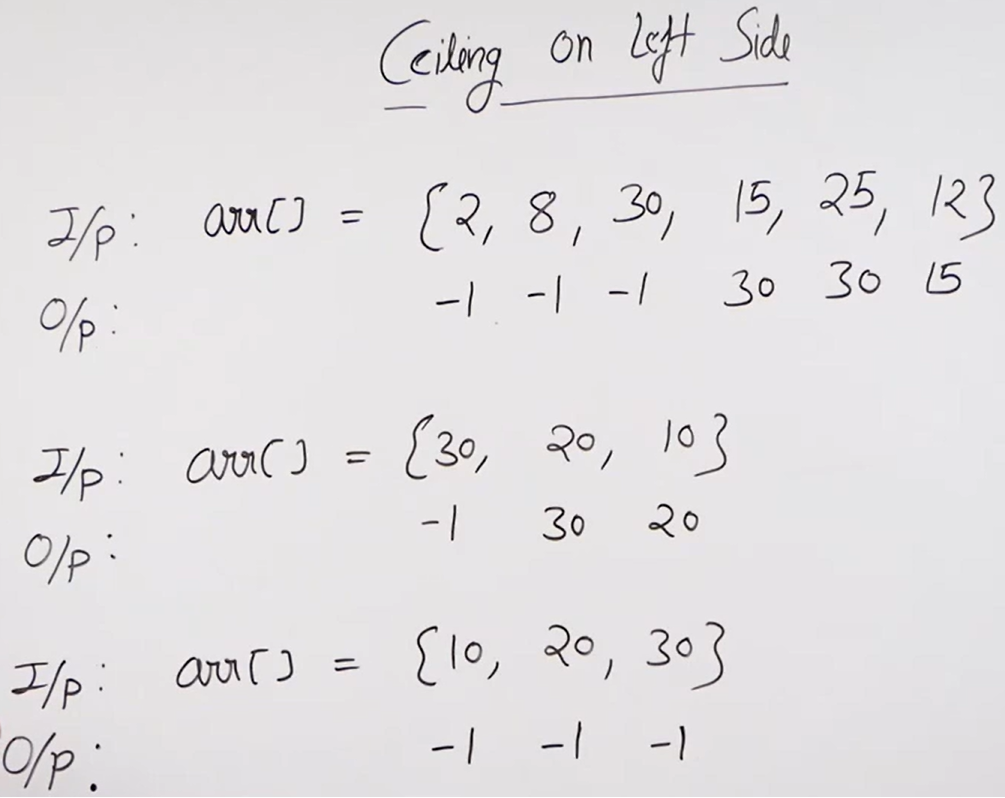 Ceiling on Left Side
I/p: arr[] = {2, 8, 30, 15, 25, 12}
O/p: -1 -1 -1 30 30 15
I/p: arr[] = {30, 20, 10}
O/p: -1 30 20
I/p: arr[] = {10, 20, 30}
O/p: -1 -1 -1